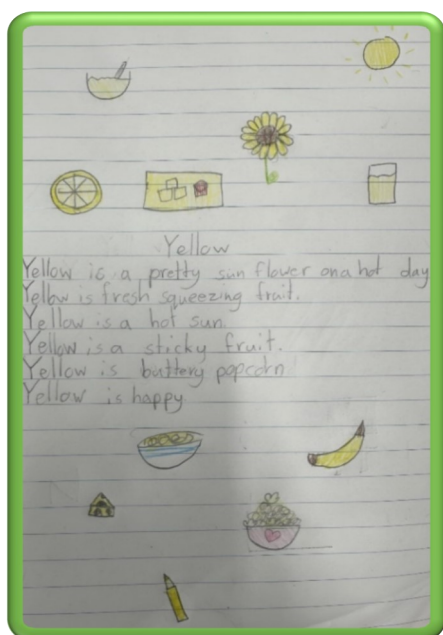 Yellow
Yellow is a pretty sun flower on a hot day
Yellow is fresh squeezing fruit.
Yellow is a hot sun.
Yellow is a sticky fruit.
Yellow is buttery popcorn
Yellow is happy.